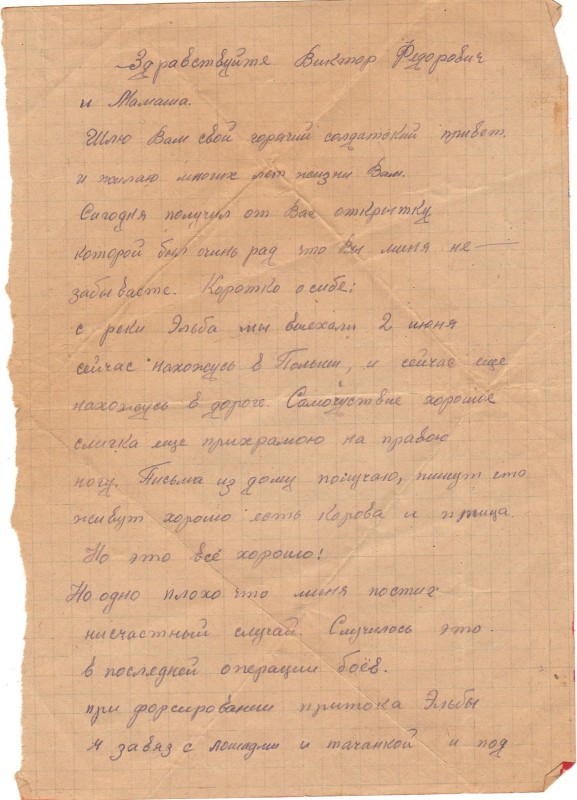 Здравствуйте Виктор Федорович
и Мамаша.
Шлю Вам свой горячий солдатский привет,
и жилаю многих лет жизни Вам.
Сигодня получил от Вас открытку
которой был очинь рад что Вы миня не —
забываете. Коротко о сибе:
с реки Эльба мы выехали 2 июня
сейчас нахожусь в Польши, и сейчас еще
нахожусь в дороге. Самочуствие хорошее
слигка еще прихрамою на правою
ногу. Письма из дому получаю, пишут что
живут хорошо есть корова и птица.
Но это всё хорошо!
Но одно плохо что миня постиг
нисчастный случай. Случилось это
в последней операции боёв.
при форсировании притока Эльбы
я завяз с лошадми и тачанкой и под